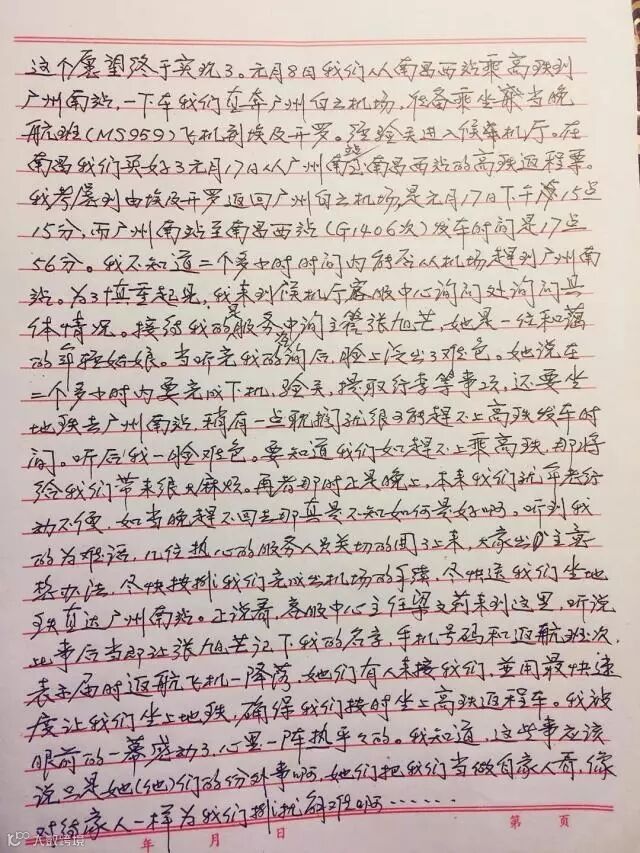 这个愿望终于实现了。元月8日我们从南昌西站乘高铁到
广州南站,一下车我们直奔广州白云机场,准备乘坐当晚
航班(MS959)飞机到埃及开罗。经验关进入候机厅。在
南昌我们买好了元月17日从广州南站至南昌西站的高铁返程票。
我考虑到由埃及开罗返回广州白云机场,是元月17日下午15点
15分,而广州南站至南昌西站(G1406次)发车时间是17点
56分。我不知道二个多小时时间内能否从机场赶到广州南
站。为了慎重起见,我来到候机厅客服中心询问处询问具
体情况。接待我的是服务咨询主管张旭芒,她是一位和蔼
的年轻姑娘。当听完我的询后,脸上泛出了难色。她说在
二个多小时内要完成下机,验关,提取行李等事项,还要坐
地铁去广州南站,稍有一点耽搁就很可能赶不上高铁发车时
间。听后我一脸难色。要知道我们如赶不上乘高铁,那将
给我们带来很大麻烦。再者那时正是晚上,本来我们就年老行
动不便,如当晚赶不回去那真是不知如何是好啊。听到我
的为难话,几位热心的服务人员关切的围了上来,大家出主意
想办法,尽快安排我们完成出机场的手续,尽快送我们坐地
铁直达广州南站。正说着,客服中心主任梁文莉来到这里,听说
此事后当即让张旭芒记下我的名字,手机号码和返航班次,
表示届时返航飞机一降落,她们有人来接我们,并用最快速
度让我们坐上地铁,确保我们按时坐上高铁返程车。我被
眼前的一幕感动了,心里一阵热乎乎的。我知道,这些事应该
说只是她(他)们的份外事啊,她们把我们当做自家人看,像
对待家人一样为我们排忧解难啊……
第 页
年 月 日
大数跨境